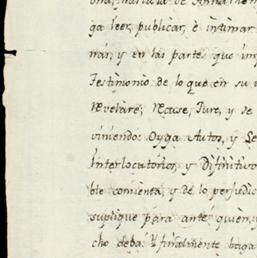 ga leer, publicar, è intimar
nar, y en las partes que im
Testimonio de lo que en su
Revelare; Recuse, Jure, y se
viniendo: Oyga Autos, y Se
Interlocutorios, y Difinitivo
ble comienta, y de lo perjudic
suplique para ante quien, y
cho deba: Y finalmente haga